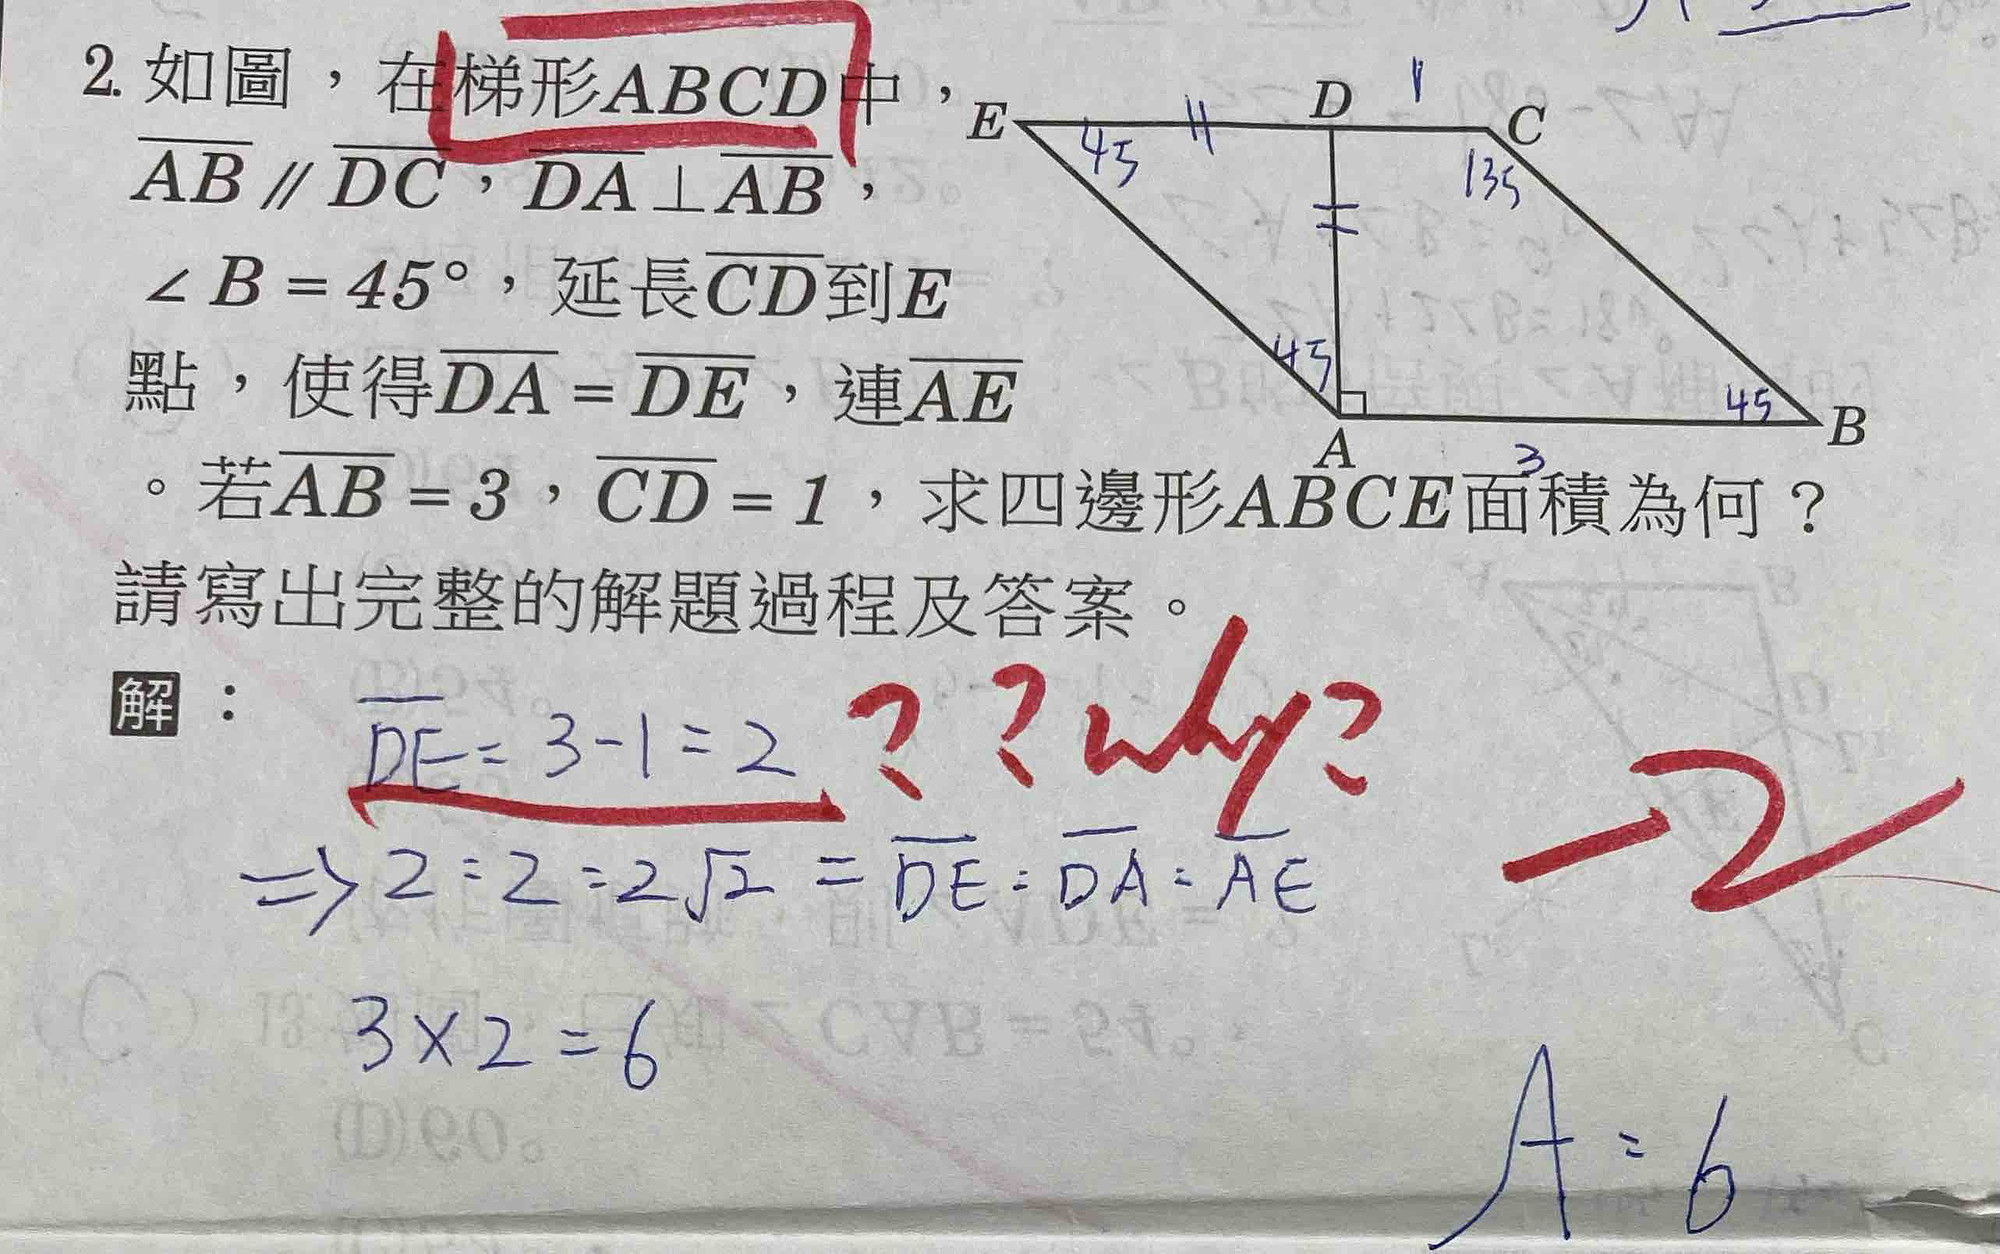 2. 如圖，在梯形ABCD中，
AB // DC，DA⊥AB，
∠B = 45°，延長CD到E
點，使得DA = DE，連AE
。若AB = 3，CD = 1，求四邊形ABCE面積為何？
請寫出完整的解題過程及答案。
E
D
1
C
45
135
45
45
A
3
B
解：
DE = 3-1 = 2
? ? why?
-2
⇒ 2:2:2√2 = DE:DA:AE
3×2=6
A=6